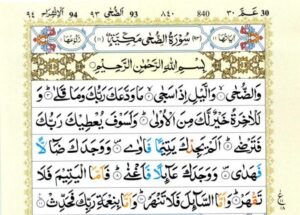 ٩٤ الانشراح 94 ٩٣ الضّحٰى 93 ٨٤٠ 840 ٣٠ عمّ 30
سُوْرَةُ الضُّحٰى مَكِّيَّةٌ
بِسْمِ اللهِ الرَّحْمٰنِ الرَّحِيْمِ
وَالضُّحٰى ۙ وَالَّيْلِ اِذَا سَجٰى ۙ مَا وَدَّعَكَ رَبُّكَ وَمَا قَلٰى ؕ وَ
لَلْاٰخِرَةُ خَيْرٌ لَّكَ مِنَ الْاُوْلٰى ؕ وَلَسَوْفَ يُعْطِيْكَ رَبُّكَ
فَتَرْضٰى ؕ اَلَمْ يَجِدْكَ يَتِيْمًا فَاٰوٰى ۪ وَوَجَدَكَ ضَآلًّا
فَهَدٰى ۪ وَوَجَدَكَ عَآئِلًا فَاَغْنٰى ؕ فَاَمَّا الْيَتِيْمَ فَلَا
تَقْهَرْ ؕ وَاَمَّا السَّآئِلَ فَلَا تَنْهَرْ ؕ وَاَمَّا بِنِعْمَةِ رَبِّكَ فَحَدِّثْ